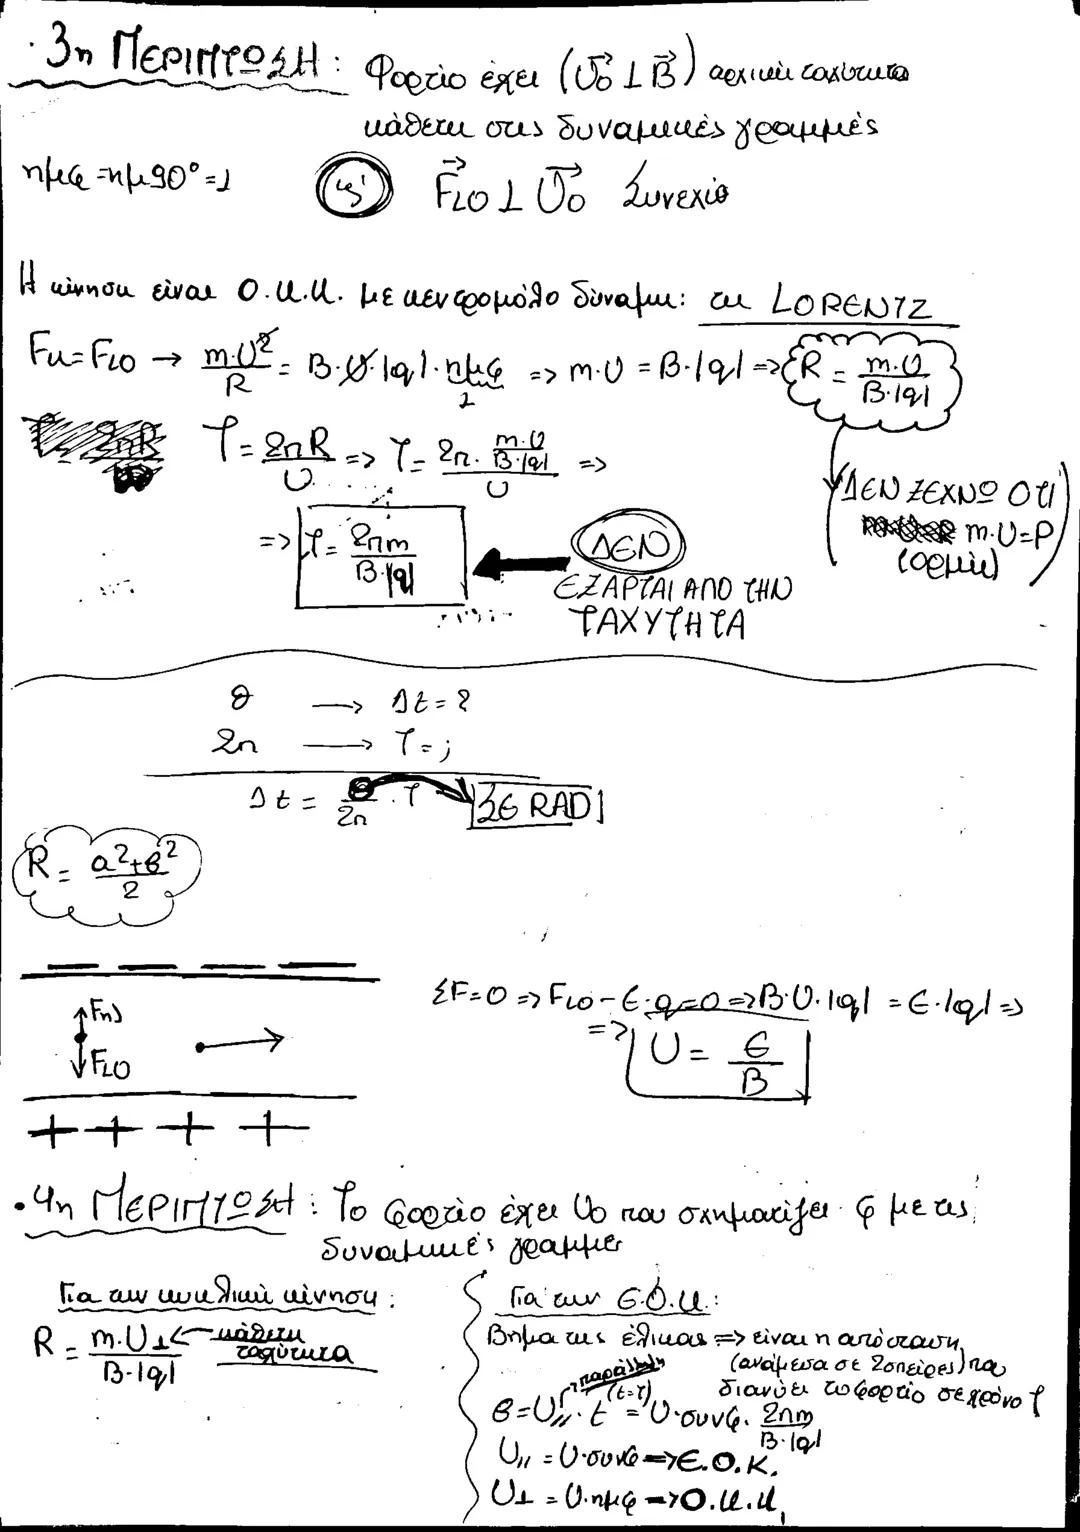 · 3η ΠΕΡΙΠΤΩΣΗ: Φορτίο έχει (υ₀⃗ ⊥ B⃗) αρχική ταχύτητα
κάθετη στις δυναμικές γραμμές
ημφ = ημ90° = 1
F⃗LO ⊥ υ⃗₀ Συνεχία
Η κίνηση είναι Ο.Κ.Κ. με κεντρομόλο δύναμη: τη LORENTZ
Fκ = FLO → m·υ²/R = B·υ·|q|·ημφ => m·υ = B·|q| => R = m·υ/B·|q|
1
T = 2πR/υ => T = 2π·(m·υ/B·|q|)/υ =>
ΔΕΝ ΞΕΧΝΩ ΟΤΙ
m·υ = P
(ορμή)
=> T = 2πm/B·|q|
ΔΕΝ
ΕΞΑΡΤΑΙ ΑΠΟ ΤΗΝ
ΤΑΧΥΤΗΤΑ
θ → Δt = ?
2π → T = ;
Δt = θ/2π · T ΣΕ RAD
R = α²+β²/2
Fηλ
FLO
ΣF=0 => FLO - E·q = 0 => B·υ·|q| = E·|q| =>
=> υ = E/B
+ + + +
· 4η ΠΕΡΙΠΤΩΣΗ: Το φορτίο έχει υ₀ που σχηματίζει φ με τις
δυναμικές γραμμές
Για την κυκλική κίνηση:
R = m·υ⊥/B·|q| ← κάθετη
ταχύτητα
Για την Ε.Ο.Κ.:
Βήμα της έλικας => είναι η απόσταση
(ανάμεσα σε 2 σπείρες) που
διανύει το φορτίο σε χρόνο T
παράλληλη
(t=T)
β = υ// · t = υ·συνφ· 2πm/B·|q|
υ// = υ·συνφ → Ε.Ο.Κ.
υ⊥ = υ·ημφ → Ο.Κ.Κ.